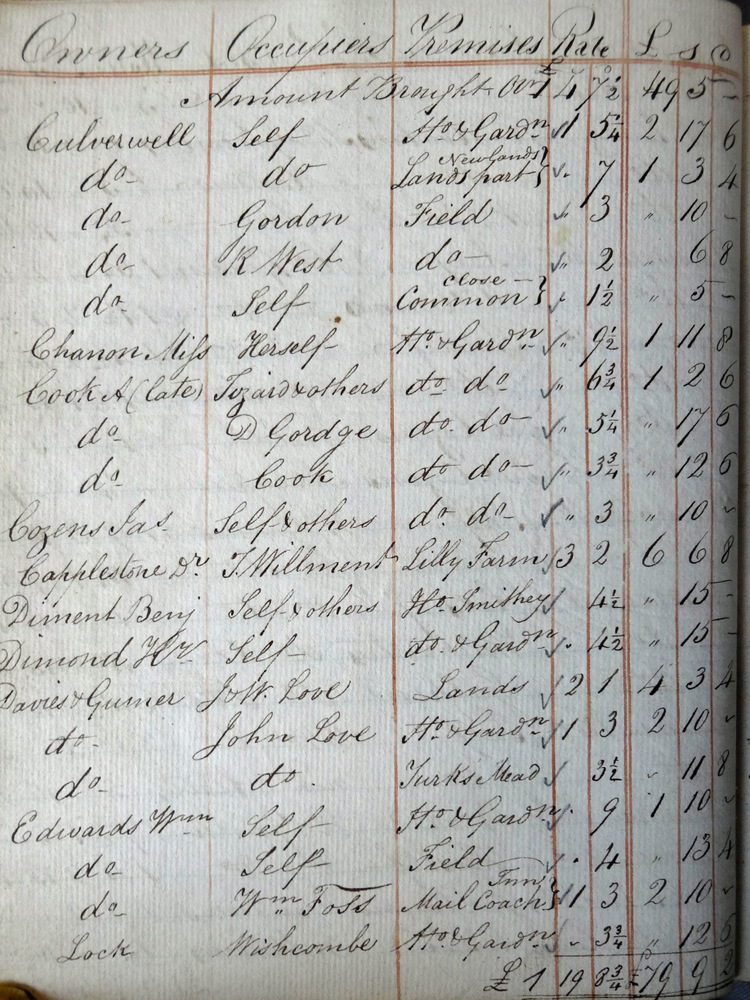 Owners Occupiers Premises Rate £ s D
Amount Brought Ovr £1 4 7½ 49 5 –
Culverwell Self Ho & Gardn 1 5¼ 2 17 6
do do Newlands Lands part } " 7 1 3 4
do Gordon Field " 3 " 10 –
do R West do " 2 " 6 8
do Self Close Common } " 1½ " 5 –
Chanon Miss Herself Ho & Gardn " 9½ 1 11 8
Cook A (late) Tozard & others do do " 6¾ 1 2 6
do D Gordge do do " 5¼ " 17 6
do Cook do do " 3¾ " 12 6
Cozens Jas Self & others do do " 3 " 10 –
Capplestone Dr T. Willment Lilly Farm 3 2 6 6 8
Diment Benj Self & others Ho Smithey 4½ " 15 –
Dimond Hy Self do & Gardn " 4½ " 15 –
Davies & Gumer J & W. Love Lands 2 1 4 3 4
do John Love Ho & Gardn 1 3 2 10 –
do do Turks Mead 3½ " 11 8
Edwards Wm Self Ho & Gardn " 9 1 10 –
do Self Field " 4 " 13 4
do Wm Foss Mail Coach Inn } 1 3 2 10 –
Lock Wishcombe Ho & Gardn " 3¾ " 12 6
£ 1 19 8¾ £79 9 2